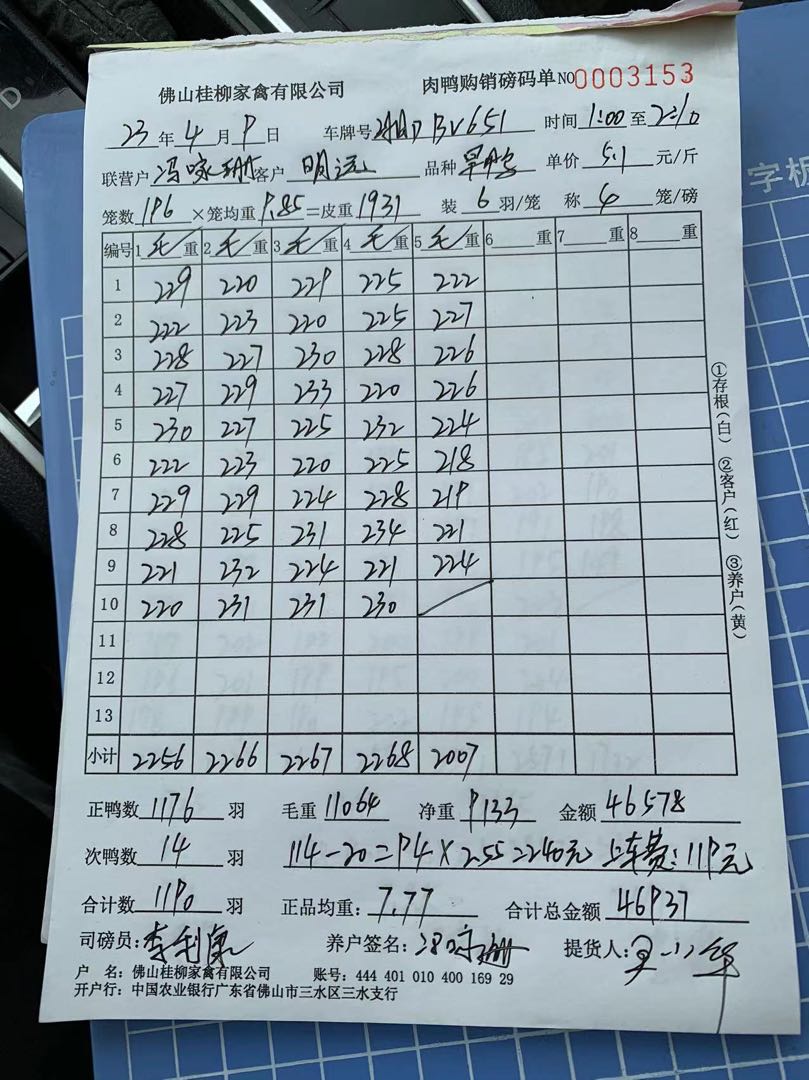 佛山桂柳家禽有限公司 肉鸭购销磅码单 NO 0003153
23 年 4 月 9 日 车牌号 湘D BV651 时间 1:00 至 2:10
联营户 冯 客户 明远 品种 旱鸭 单价 5.1 元/斤
笼数 196 ×笼均重 9.85 =皮重 1931 装 6 羽/笼 称 4 笼/磅
编号 1 毛 重 2 毛 重 3 毛 重 4 毛 重 5 毛 重 6 重 7 重 8 重
1 229 220 229 225 222
2 222 223 220 225 227
3 228 227 230 228 226
4 227 229 233 220 226
5 230 227 225 232 224
6 222 223 220 225 218
7 229 229 224 228 219
8 228 225 231 234 221
9 221 232 224 221 224
10 220 231 231 230
11
12
13
小计 2256 2266 2267 2268 2007
正鸭数 1176 羽 毛重 11064 净重 9133 金额 46578
次鸭数 14 羽 114-20=94×2.55 2240元 上车费:119元
合计数 1190 羽 正品均重: 7.77 合计总金额 46937
司磅员: 李 养户签名: 冯 提货人: 小华
户 名: 佛山桂柳家禽有限公司 账号: 444 401 010 400 169 29
开户行: 中国农业银行广东省佛山市三水区三水支行
①存根(白) ②客户(红) ③养户(黄)
字板
D